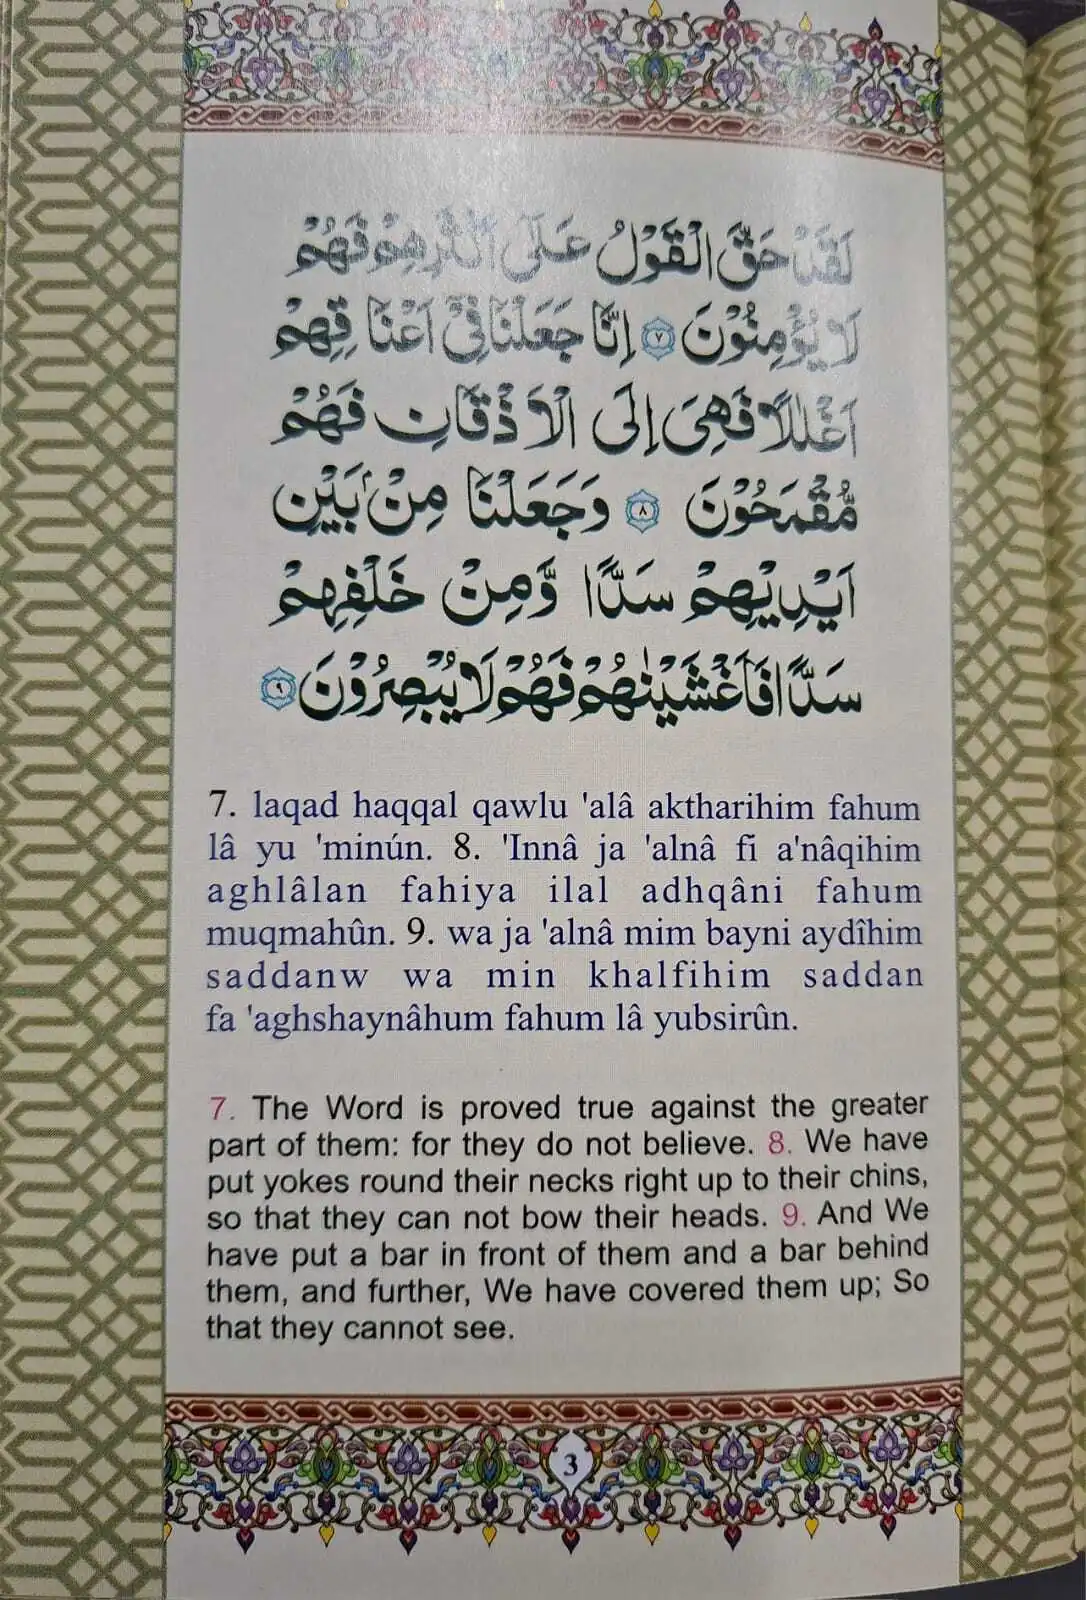 لَقَدْ حَقَّ الْقَوْلُ عَلٰٓى اَكْثَرِهِمْ فَهُمْ
لَا يُؤْمِنُوْنَ ۷ اِنَّا جَعَلْنَا فِىْٓ اَعْنَا قِهِمْ
اَغْلٰلًا فَهِىَ اِلَى الْاَ ذْقَانِ فَهُمْ
مُّقْمَحُوْنَ ۸ وَجَعَلْنَا مِنْۢ بَيْنِ
اَيْدِيْهِمْ سَدًّا وَّمِنْ خَلْفِهِمْ
سَدًّا فَاَغْشَيْنٰهُمْ فَهُمْ لَا يُبْصِرُوْنَ ۹
7. laqad haqqal qawlu 'alâ aktharihim fahum
lâ yu 'minún. 8. 'Innâ ja 'alnâ fi a'nâqihim
aghlâlan fahiya ilal adhqâni fahum
muqmahûn. 9. wa ja 'alnâ mim bayni aydîhim
saddanw wa min khalfihim saddan
fa 'aghshaynâhum fahum lâ yubsirûn.
7. The Word is proved true against the greater
part of them: for they do not believe. 8. We have
put yokes round their necks right up to their chins,
so that they can not bow their heads. 9. And We
have put a bar in front of them and a bar behind
them, and further, We have covered them up; So
that they cannot see.
3